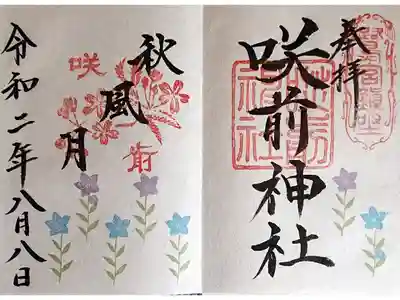 奉拝
咲前神社
秋風月
咲
前
令和二年八月八日